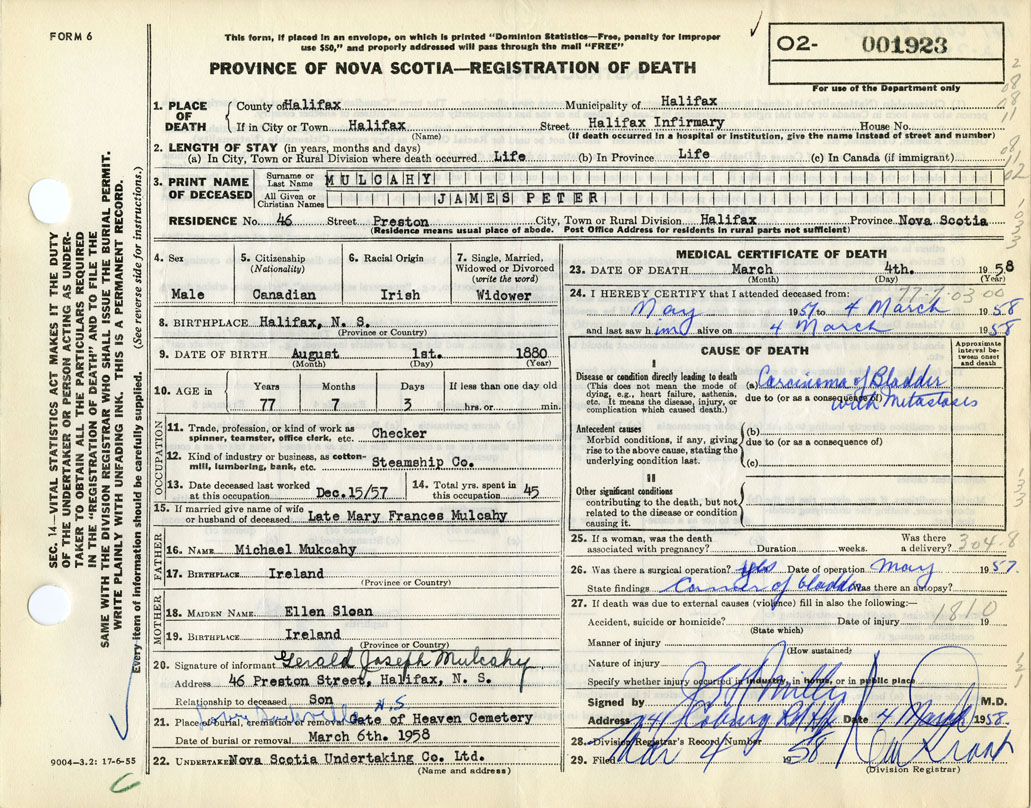 FORM 6
This form, if placed in an envelope, on which is printed "Dominion Statistics—Free, penalty for improper
use $50," and properly addressed will pass through the mail "FREE"
PROVINCE OF NOVA SCOTIA—REGISTRATION OF DEATH
02- 001923
For use of the Department only
SEC. 14—VITAL STATISTICS ACT MAKES IT THE DUTY
OF THE UNDERTAKER OR PERSON ACTING AS UNDER-
TAKER TO OBTAIN ALL THE PARTICULARS REQUIRED
IN THE "REGISTRATION OF DEATH" AND TO FILE THE
SAME WITH THE DIVISION REGISTRAR WHO SHALL ISSUE THE BURIAL PERMIT.
WRITE PLAINLY WITH UNFADING INK. THIS IS A PERMANENT RECORD.
Every item of information should be carefully supplied. (See reverse side for instructions.)
1. PLACE OF DEATH County of Halifax Municipality of Halifax
If in City or Town Halifax Street Halifax Infirmary House No.
(Name) (If death occurred in a hospital or institution, give the name instead of street and number)
2. LENGTH OF STAY (in years, months and days)
(a) In City, Town or Rural Division where death occurred Life (b) In Province Life (c) In Canada (if immigrant)
3. PRINT NAME OF DECEASED Surname or Last Name MULCAHY
All Given or Christian Names JAMES PETER
RESIDENCE No. 46 Street Preston City, Town or Rural Division Halifax Province Nova Scotia
(Residence means usual place of abode. Post Office Address for residents in rural parts not sufficient)
4. Sex Male
5. Citizenship (Nationality) Canadian
6. Racial Origin Irish
7. Single, Married, Widowed or Divorced (write the word) Widower
8. BIRTHPLACE Halifax, N. S.
(Province or Country)
9. DATE OF BIRTH August 1st. 1880
(Month) (Day) (Year)
10. AGE in Years Months Days If less than one day old
77 7 3 hrs. or min.
OCCUPATION
11. Trade, profession, or kind of work as spinner, teamster, office clerk, etc. Checker
12. Kind of industry or business, as cotton-mill, lumbering, bank, etc. Steamship Co.
13. Date deceased last worked at this occupation Dec.15/57
14. Total yrs. spent in this occupation 45
15. If married give name of wife or husband of deceased Late Mary Frances Mulcahy
FATHER
16. NAME Michael Mukcahy
17. BIRTHPLACE Ireland
(Province or Country)
MOTHER
18. MAIDEN NAME Ellen Sloan
19. BIRTHPLACE Ireland
(Province or Country)
20. Signature of informant Gerald Joseph Mulcahy
Address 46 Preston Street, Halifax, N. S.
Relationship to deceased Son
N.S.
21. Place of burial, cremation or removal Gate of Heaven Cemetery
Date of burial or removal March 6th. 1958
22. UNDERTAKER Nova Scotia Undertaking Co. Ltd.
(Name and address)
9004—3.2: 17-6-55
MEDICAL CERTIFICATE OF DEATH
23. DATE OF DEATH March 4th. 1958
(Month) (Day) (Year)
24. I HEREBY CERTIFY that I attended deceased from:
May 1957 to 4 March 1958
and last saw him alive on 4 March 1958
CAUSE OF DEATH
Approximate interval between onset and death
I
Disease or condition directly leading to death
(This does not mean the mode of dying, e.g., heart failure, asthenia, etc. It means the disease, injury, or complication which caused death.)
(a) Carcinoma of Bladder
due to (or as a consequence of) with Metastasis
Antecedent causes
Morbid conditions, if any, giving rise to the above cause, stating the underlying condition last.
(b)
due to (or as a consequence of)
(c)
II
Other significant conditions
contributing to the death, but not related to the disease or condition causing it.
25. If a woman, was the death associated with pregnancy? Duration weeks. Was there a delivery?
304.8
26. Was there a surgical operation? yes Date of operation May 1957.
State findings Cancer of bladder Was there an autopsy?
27. If death was due to external causes (violence) fill in also the following:—
1810
Accident, suicide or homicide? Date of injury 19
(State which)
Manner of injury
(How sustained)
Nature of injury
Specify whether injury occurred in industry, in home, or in public place
Signed by M.D.
Address Coburg Rd Date 4 March 1958.
28. Division Registrar's Record Number
29. Filed Mar 4 1958
(Division Registrar)